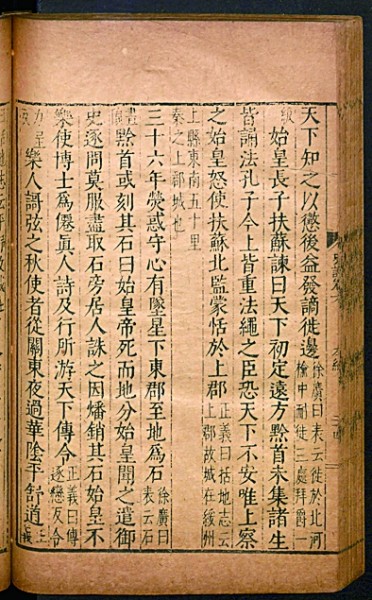 天下知之以懲後益發謫徙邊徐廣曰表云徙於北河榆中耐徙三處拜爵一
級始皇長子扶蘇諫曰天下初定遠方黔首未集諸生
皆誦法孔子今上皆重法繩之臣恐天下不安唯上察
之始皇怒使扶蘇北監蒙恬於上郡正義曰括地志云上郡故城在綏州
上縣東南五十里秦之上郡城也
三十六年熒惑守心有墜星下東郡至地爲石徐廣曰表云石
黔首或刻其石曰始皇帝死而地分始皇聞之遣御
史逐問莫服盡取石旁居人誅之因燔銷其石始皇不
樂使博士爲僊眞人詩及行所游天下傳令正義曰傳逐戀反令
力呈反樂人謌弦之秋使者從關東夜過華陰平舒道正義